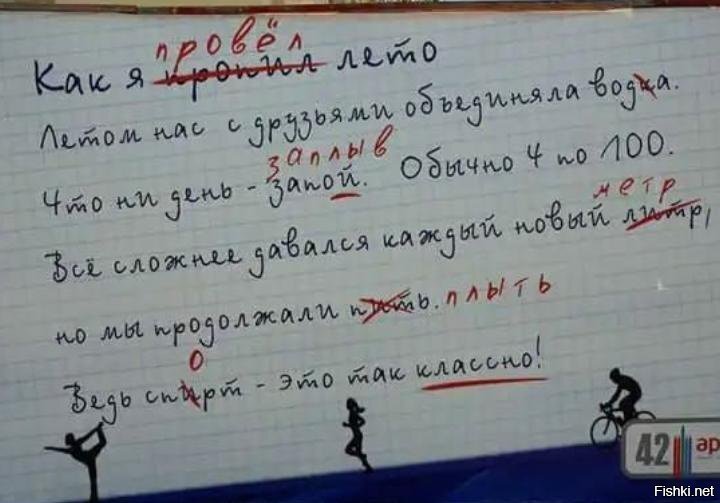 провёл
Как я пропил лето
Летом нас с друзьями объединяла водка.
заплыв
Что ни день - запой. Обычно 4 по 100.
метр
Всё сложнее давался каждый новый литр,
но мы продолжали пить. плыть
о
Ведь спирт - это так классно!
42 ар
Fishki.net